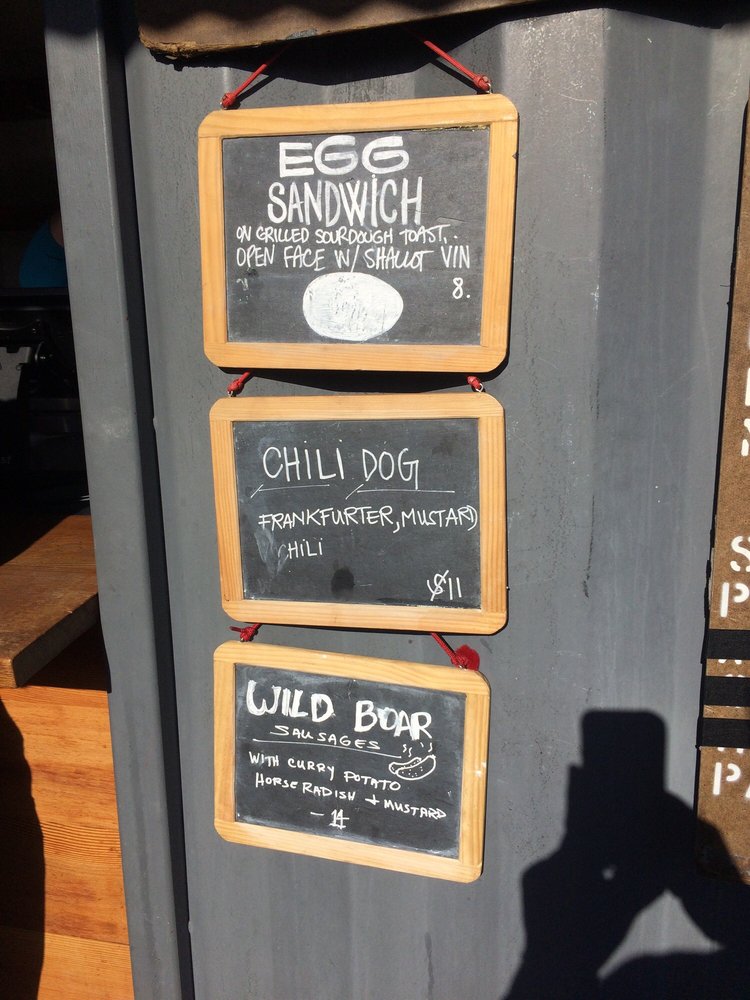 EGG
SANDWICH
ON GRILLED SOURDOUGH TOAST,.
OPEN FACE W/ SHALLOT VIN
8.
CHILI DOG
FRANKFURTER, MUSTARD
CHILI
$11
WILD BOAR
SAUSAGES
WITH CURRY POTATO
HORSE RADISH + MUSTARD
- 14